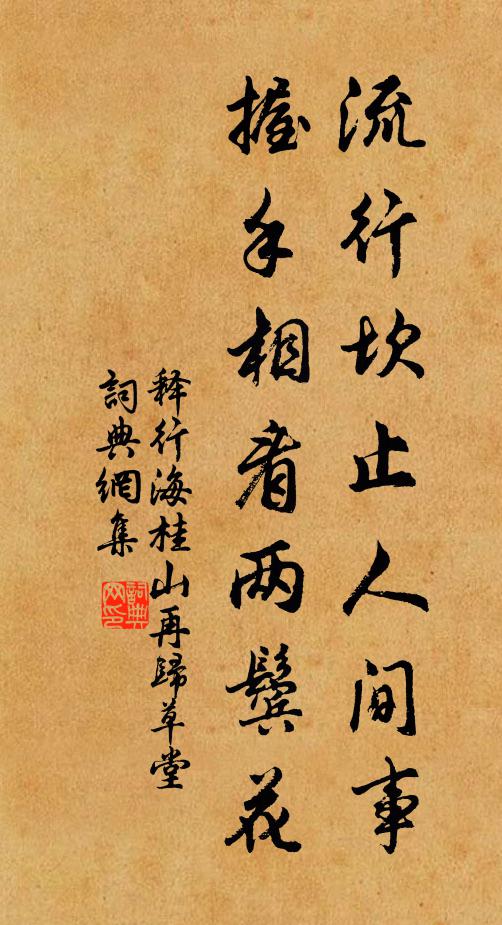 流行坎止人间事
握手相看两鬓花
释行海桂山再歸草堂
詞典網集
詞典网印